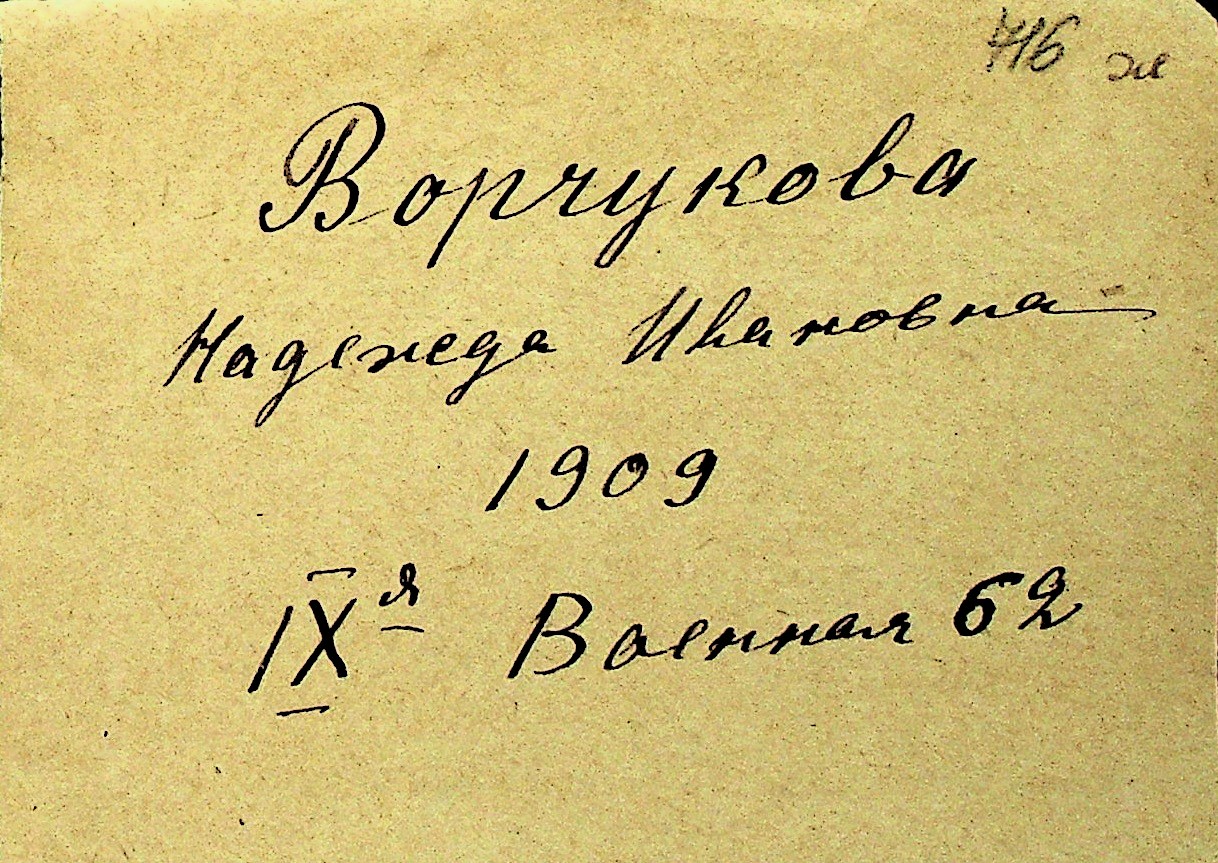 716 ж
Ворчукова
Надежда Ивановна
1909
IX я Военная 62